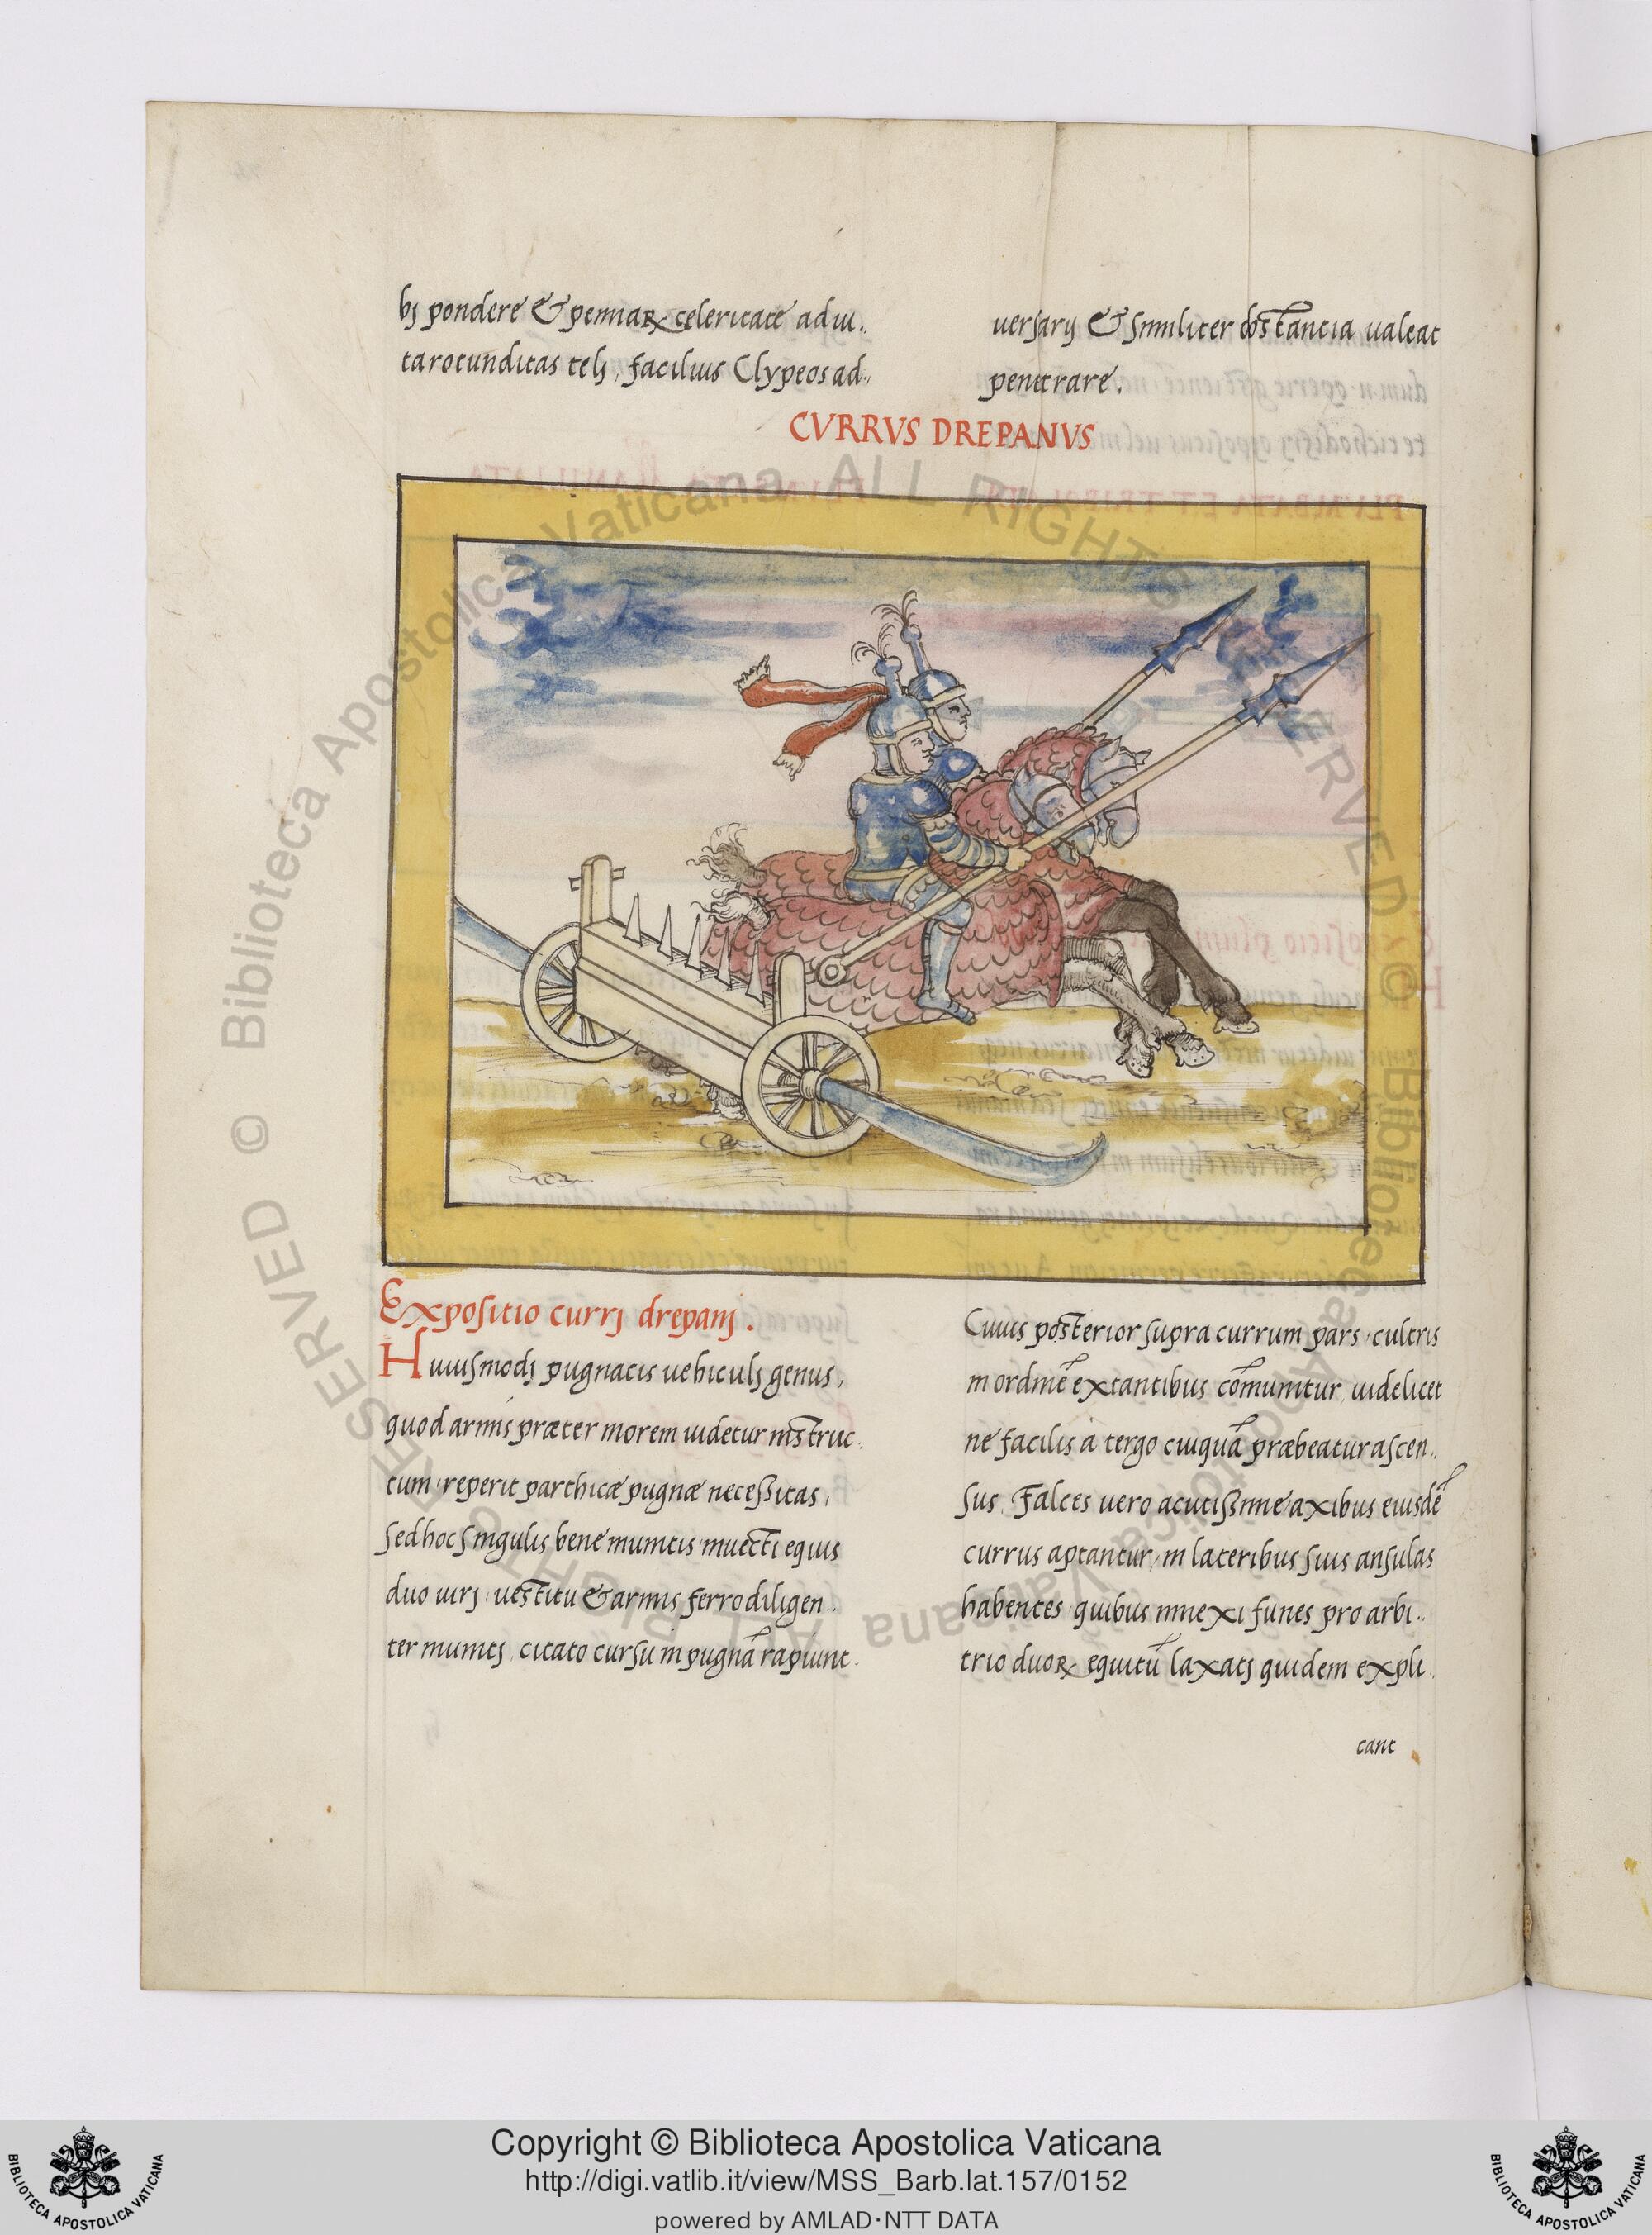 bj pondere & pennaꝝ celeritate adiu..
ta rotunditas telj, facilius Clypeos ad..
uersarij & similiter obstantia ualeat
penetrare.
CVRRVS DREPANVS
Expositio currj drepanj.
Huiusmodj pugnacis uehiculj genus,
quod armis præter morem uidetur instruc.
tum, reperit parthicæ pugnæ neceßitas,
sed hoc singulis bene munitis inuecti equis
duo uirj, uestitu & armis ferro diligen.
ter munitj, citato cursu in pugnā rapiunt.
Cuius posterior supra currum pars, cultris
in ordinē extantibus cōmunitur, uidelicet
ne facilis á tergo cuiquā præbeatur ascen..
sus. Falces uero acutißime axibus eiusdē
currus aptantur, in lateribus suis ansulas
habentes quibus innexi funes pro arbi..
trio duoꝝ equitū laxatj quidem expli.
cant
Biblioteca Apostolica Vaticana ALL RIGHTS RESERVED ©
Copyright © Biblioteca Apostolica Vaticana
http://digi.vatlib.it/view/MSS_Barb.lat.157/0152
powered by AMLAD·NTT DATA
BIBLIOTECA APOSTOLICA VATICANA
BIBLIOTECA APOSTOLICA VATICANA